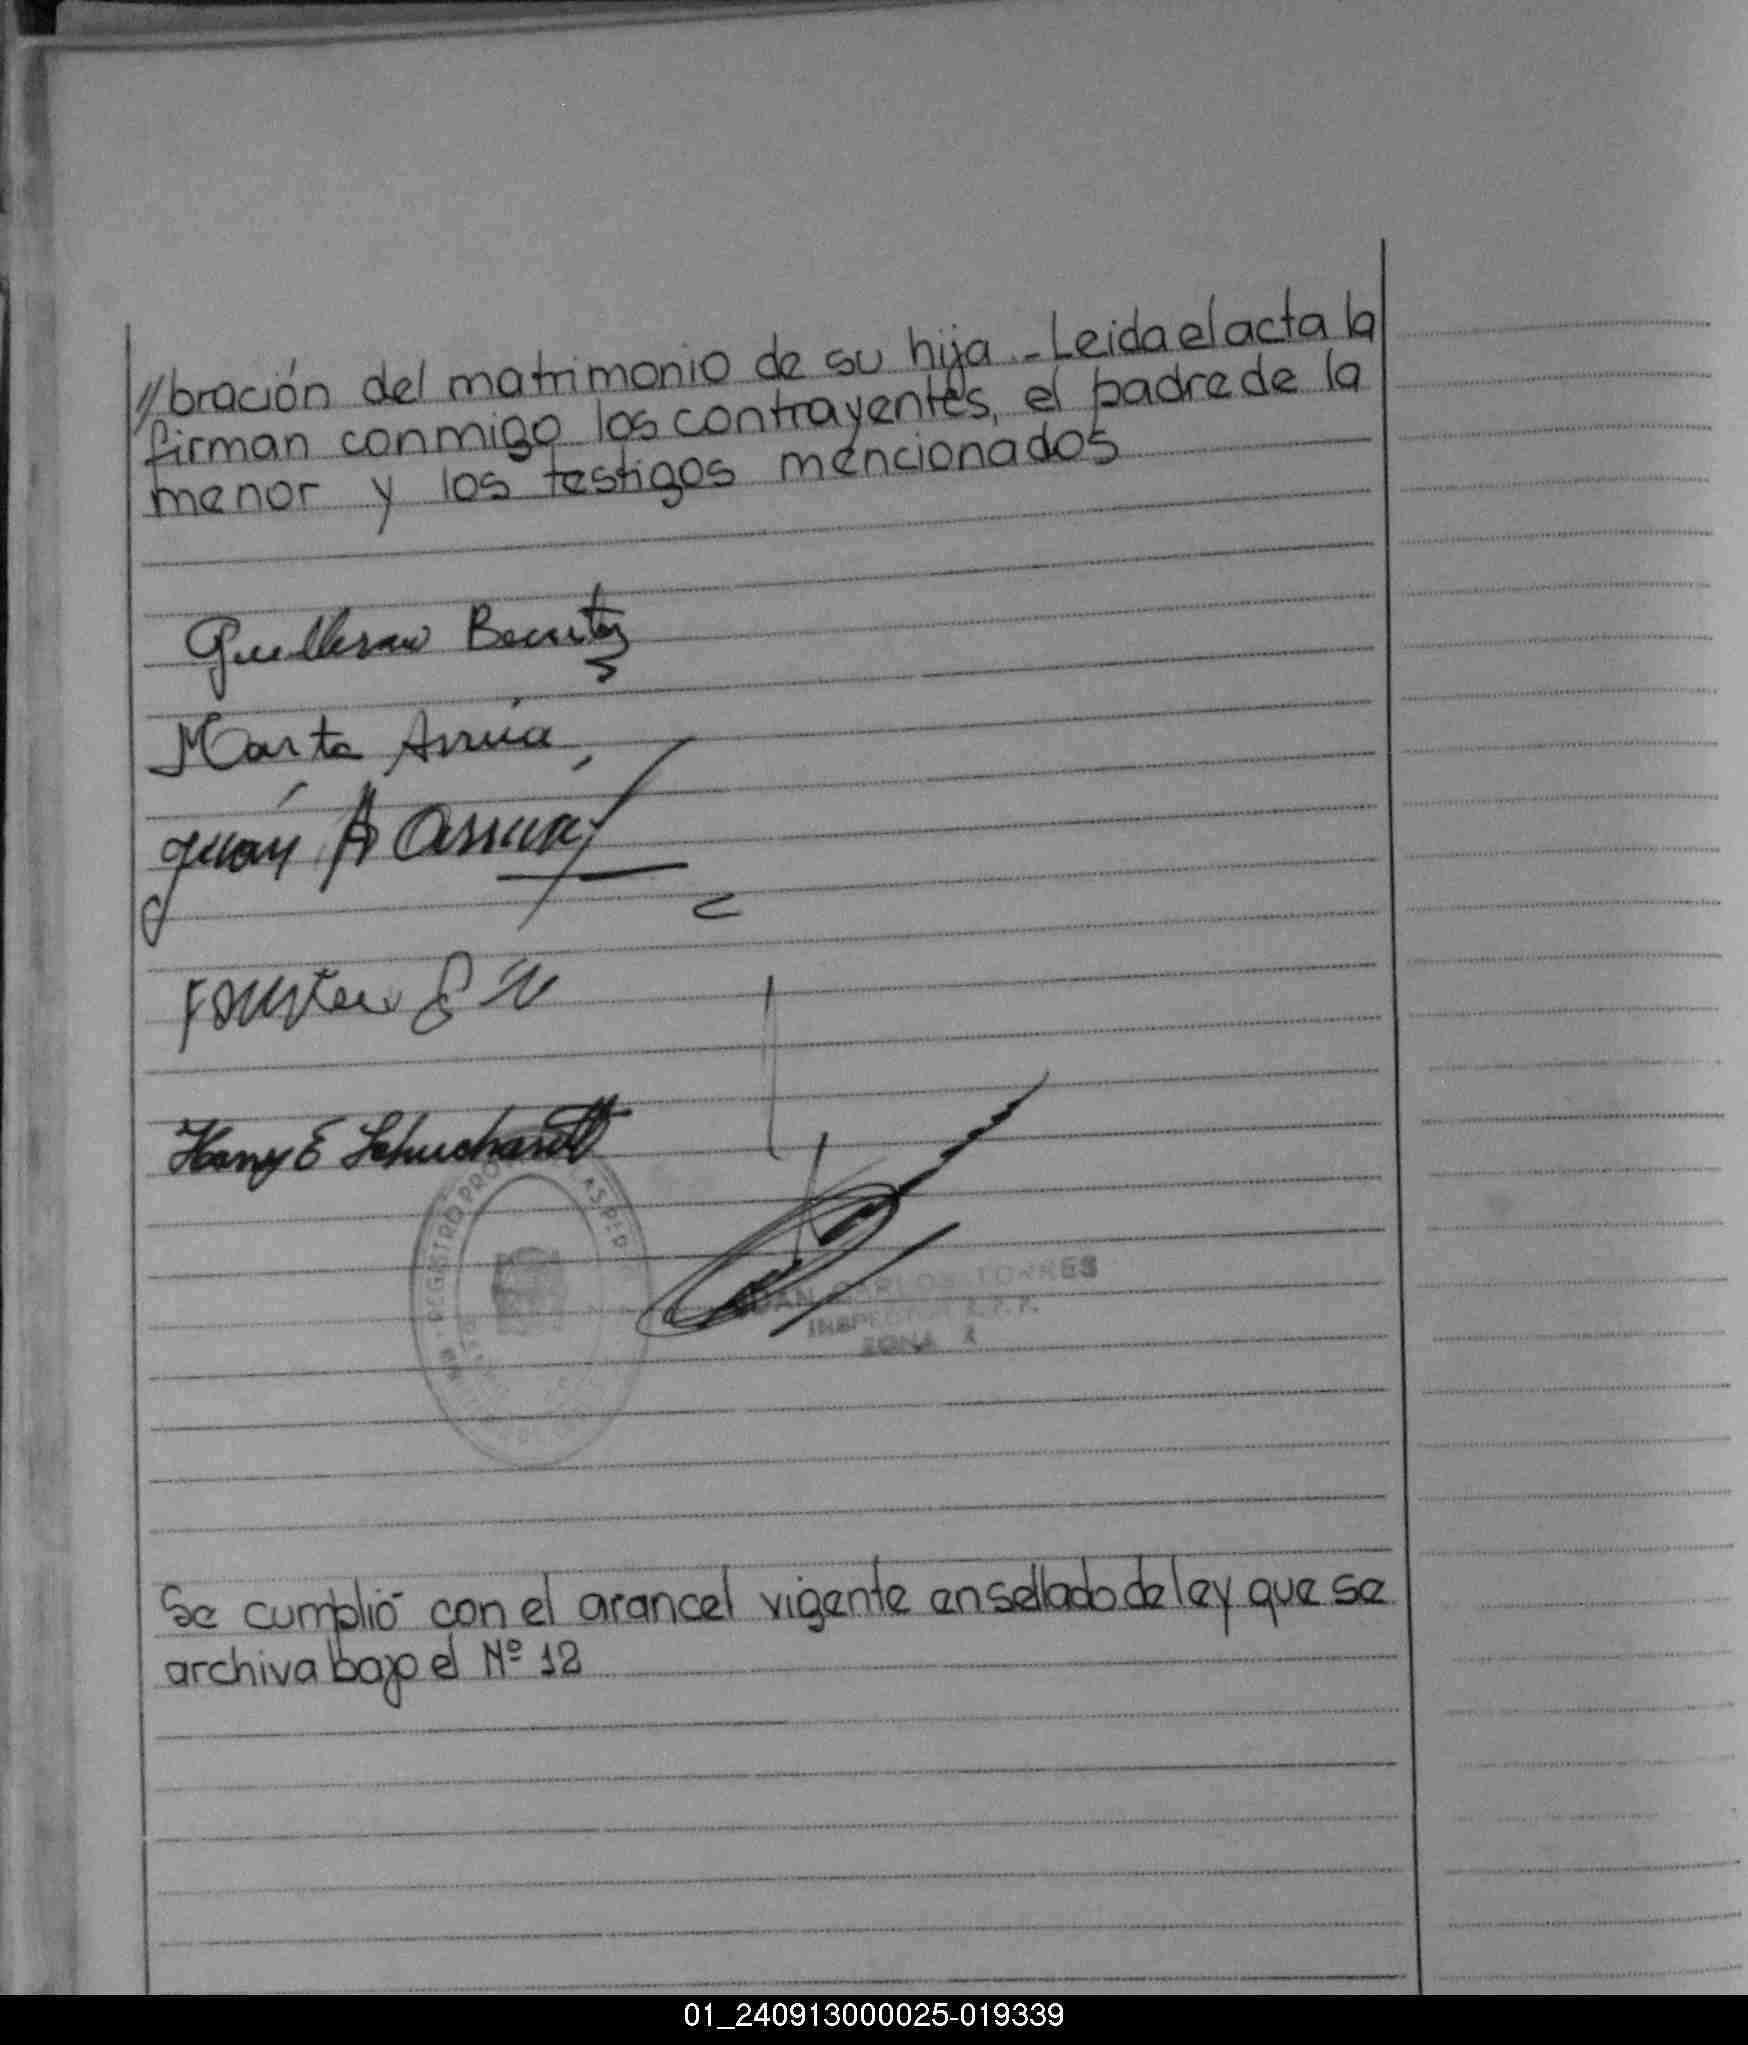 //bración del matrimonio de su hija.- Leida el acta la
firman conmigo los contrayentes, el padre de la
menor y los testigos mencionados
Guillermo Benitez
Marta Arrúa
Juan A Arrúa
Harry E Schuchardt
REGISTRO PRO
JUAN CARLOS TORRES
INSPECTOR
ZONA
Se cumplió con el arancel vigente en sellado de ley que se
archiva bajo el Nº 12
01_240913000025-019339